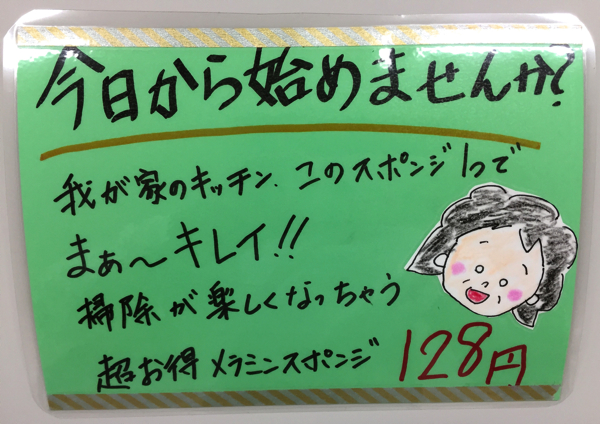 今日から始めませんか?
我が家のキッチン、このスポンジ1つで
まぁ〜キレイ!!
掃除が楽しくなっちゃう
超お得 メラミンスポンジ 128円